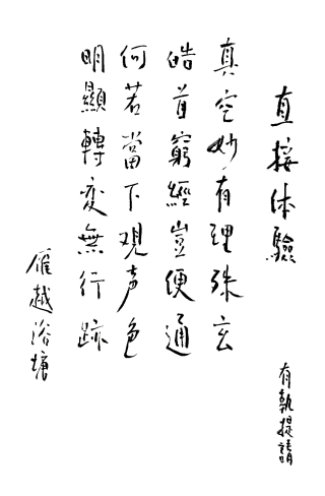 直接体驗
真空妙有理殊玄
皓首窮經豈便通
何若當下观声色
明顯轉变無行跡
雁越浴塘
有執提請